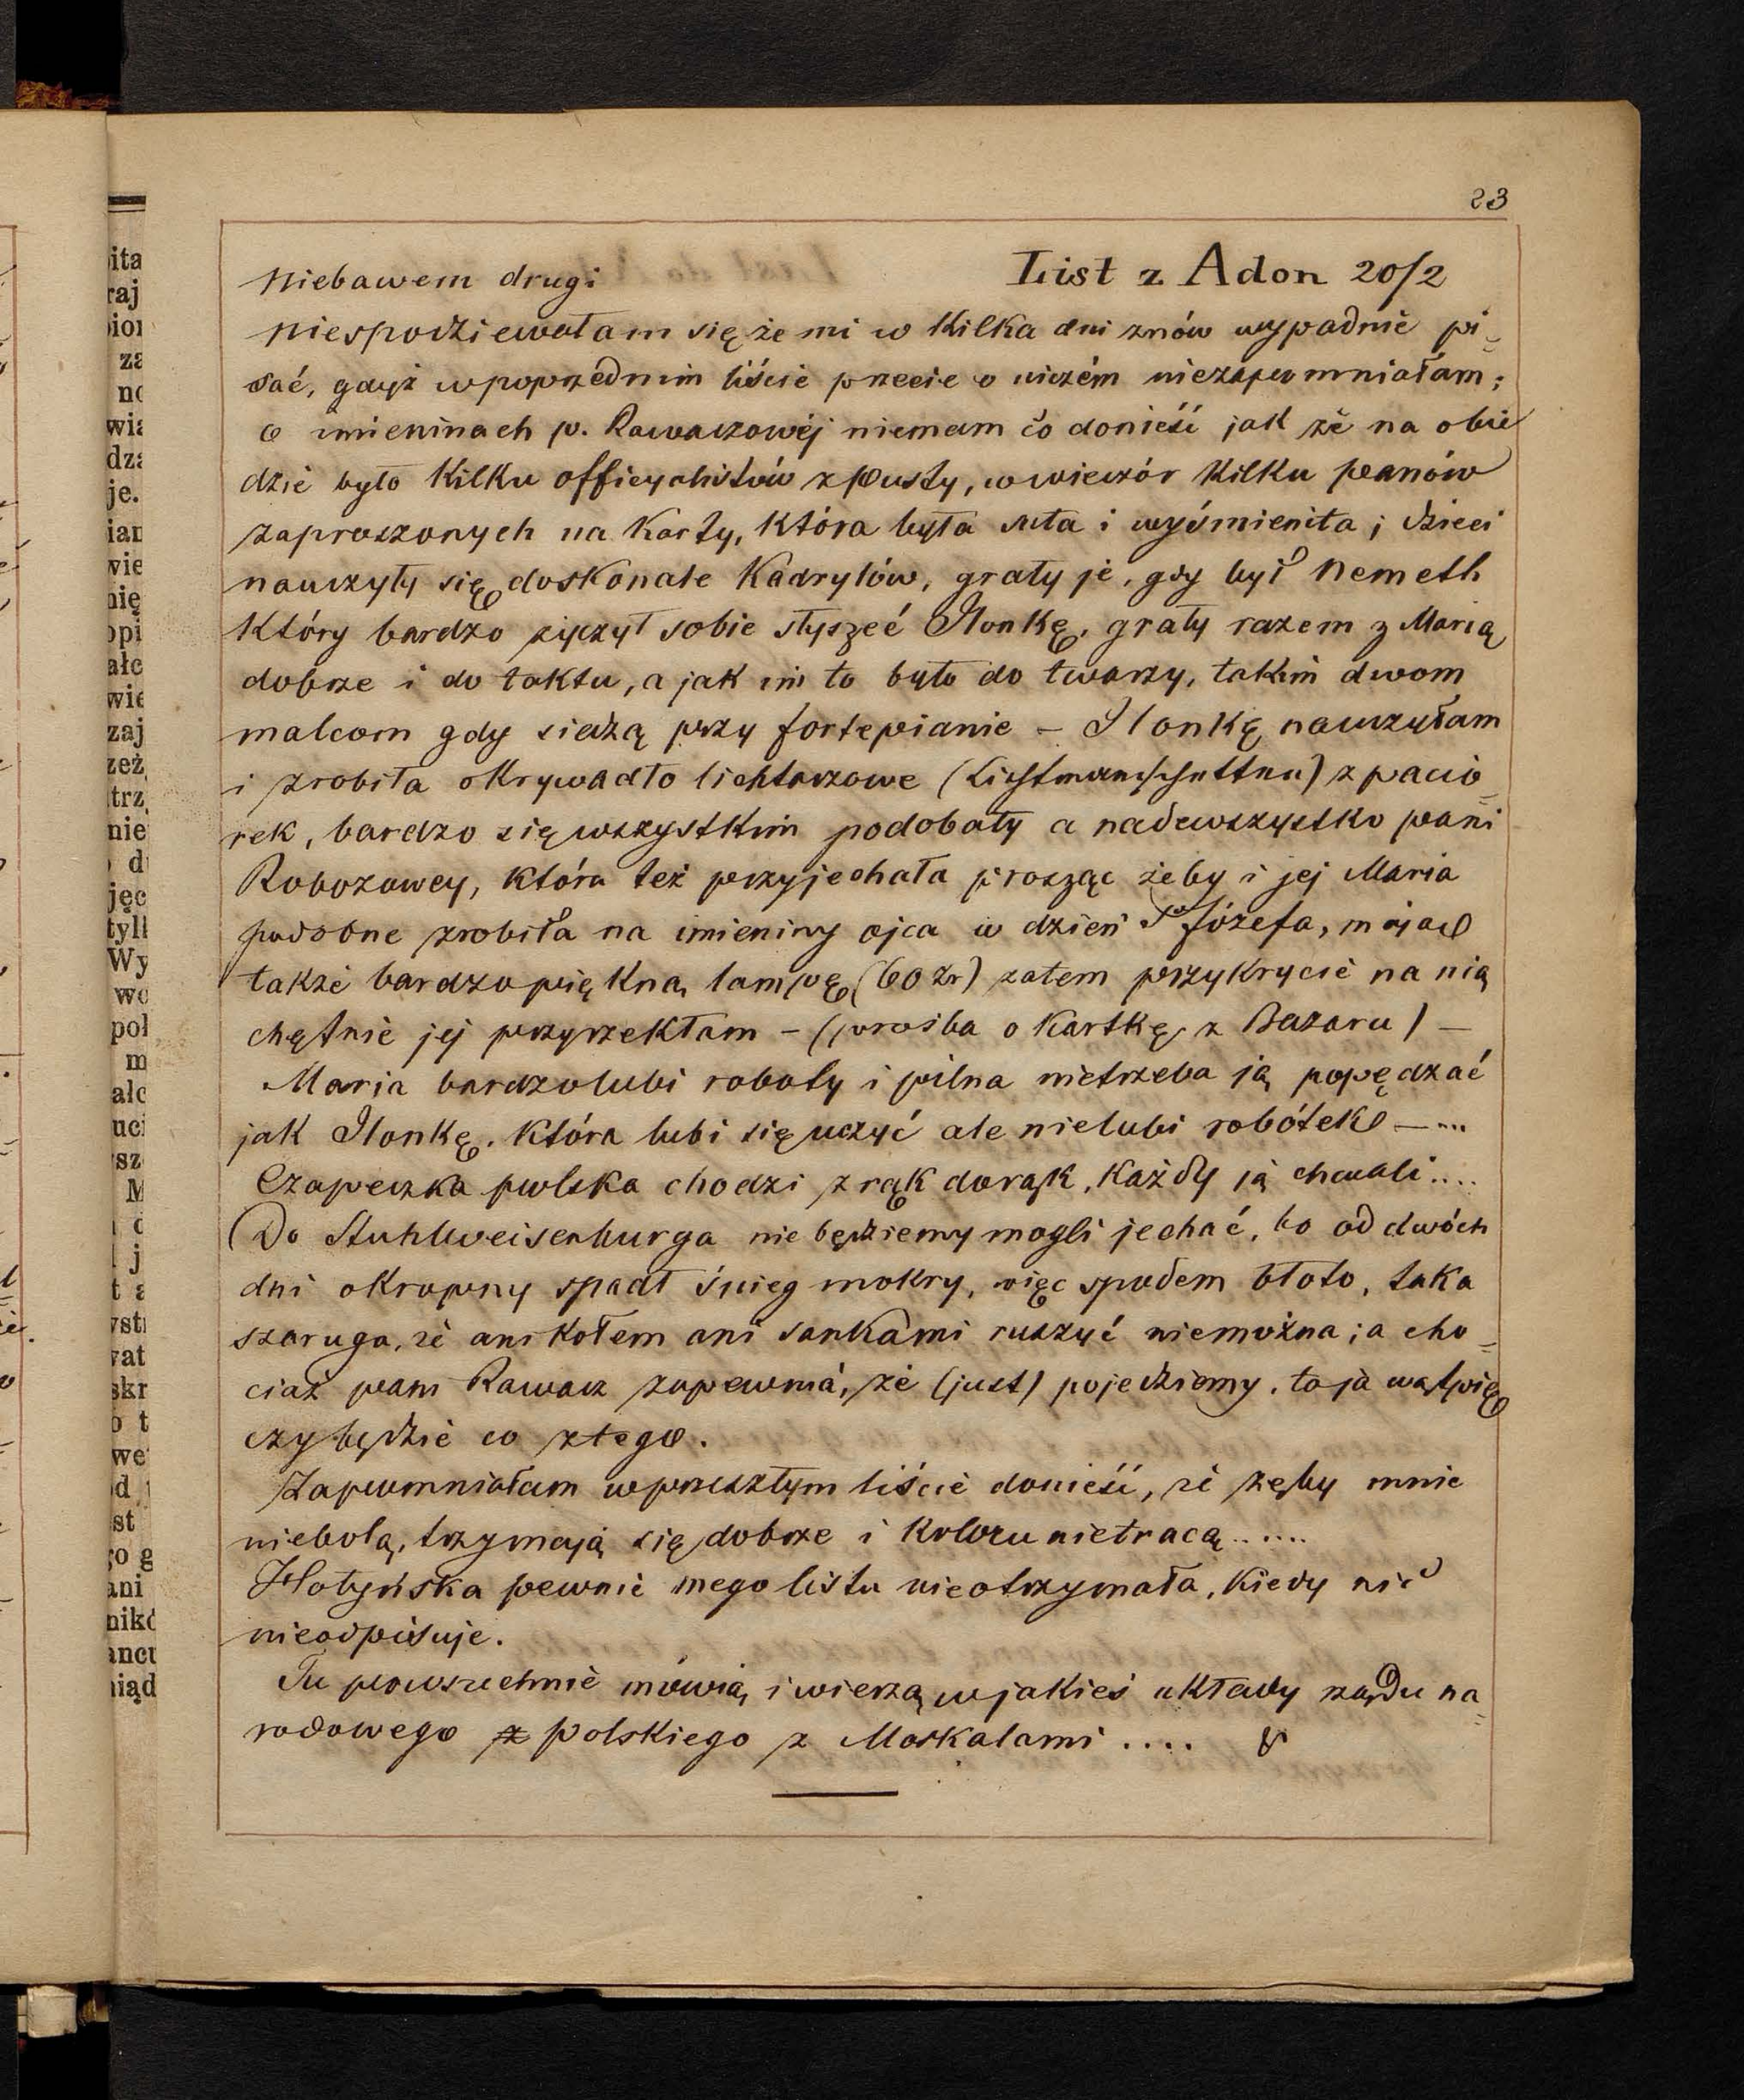 23
Niebawem drugi List z Adon 20/2
Niespodziewałam się że mi w kilka dni znów wypadnie pi=
sać, gdyż w poprzednim liście przecie o niczém niezapomniałam;
o imieninach p. Rawaczowéj niemam co donieść jak że na obie
dzie było kilku officyalistów z Pusty, w wieczór kilku panów
zaproszonych na karty, która była suta i wyśmienita; dzieci
nauczyły się doskonale Kadrylów, grały je, gdy był Nemeth
który bardzo życzył sobie słyszeć Ilonkę, grały razem z Marią
dobrze i do taktu, a jak im to było do twarzy, takim dwom
malcom gdy siedzą przy fortepianie – Ilonkę nauczyłam
i zrobiła okrywadło lichtarzowe z pacio=
rek, bardzo się wszystkim podobały a nadewszystko pani
Robozowey, która też przyjechała prosząc żeby i jej Maria
podobne zrobiła na imieniny ojca w dzień Sgo Józefa, mając
także bardzo piękną lampę (60 zr) zatem przykrycie na nią
chętnie jej przyrzekłam – (prośba o kartkę z Bazaru) –
Maria bardzo lubi roboty i pilna nietrzeba ją popędzać
jak Ilonkę, która lubi się uczyć ale nielubi robótek – ...
Czapeczka polska chodzi z rąk do rąk, każdy ją chwali....
Do Stuhlweisenburga nie będziemy mogli jechać, bo od dwóch
dni okropny spadł śnieg mokry, więc spodem błoto, taka
szaruga, że ani kołem ani sankami ruszyć niemożna; a cho=
ciaż pani Rawacz zapewnia, że (just) pojedziemy, to ja wątpię
czy będzie co z tego.
Zapomniałam w przeszłym liście donieść, że zęby mnie
niebolą, trzymają się dobrze i koloru nietracą......
Hotyńska pewnie mego listu nieotrzymała, kiedy nic
nieodpisuje.
Tu powszechnie mówią i wierzą w jakieś układy rządu na=
rodowego polskiego z Moskalami ....
ita
raj
pior
za
no
wia
dza
je.
ian
wie
nię
opi
ałc
wie
zaj
zeż
trz
nie
d
jęc
tyll
Wy
wo
pol
m
ałc
uci
sz
M
j
t a
st
wat
skr
o t
we
d
st
go g
ani
nikó
ancu
iąd